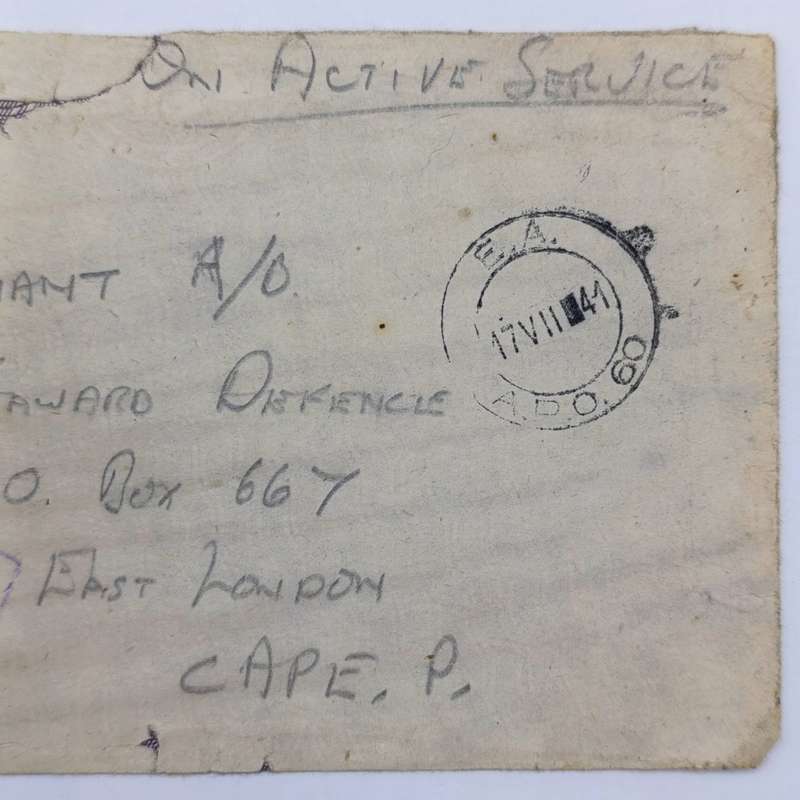 On Active Service
E.A.
17 VII 41
A.P.O. 60
A/O.
Defence
O. Box 667
East London
CAPE. P.